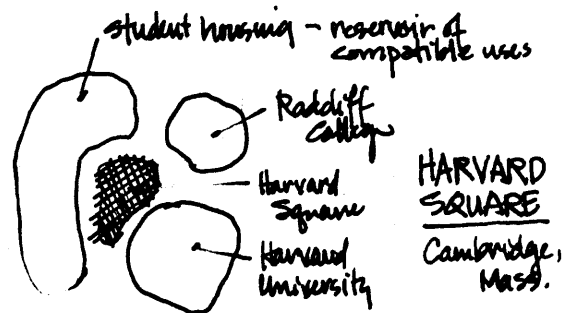 student housing – reservoir of
compatible uses
Radcliff
College
Harvard
Square
Harvard
University
HARVARD
SQUARE
Cambridge,
Mass.